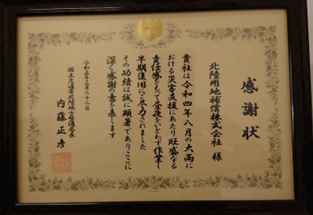 感謝状
北陸用地補償株式会社 様
貴社は令和四年八月の大雨に
おける災害支援にあたり旺盛なる
責任感をもって昼夜をいとわず作業し
早期復旧に尽力されました
その功績は誠に顕著でありここに
深く感謝の意を表します
令和五年三月二十二日
国土交通省北陸地方整備局長
内藤正彦